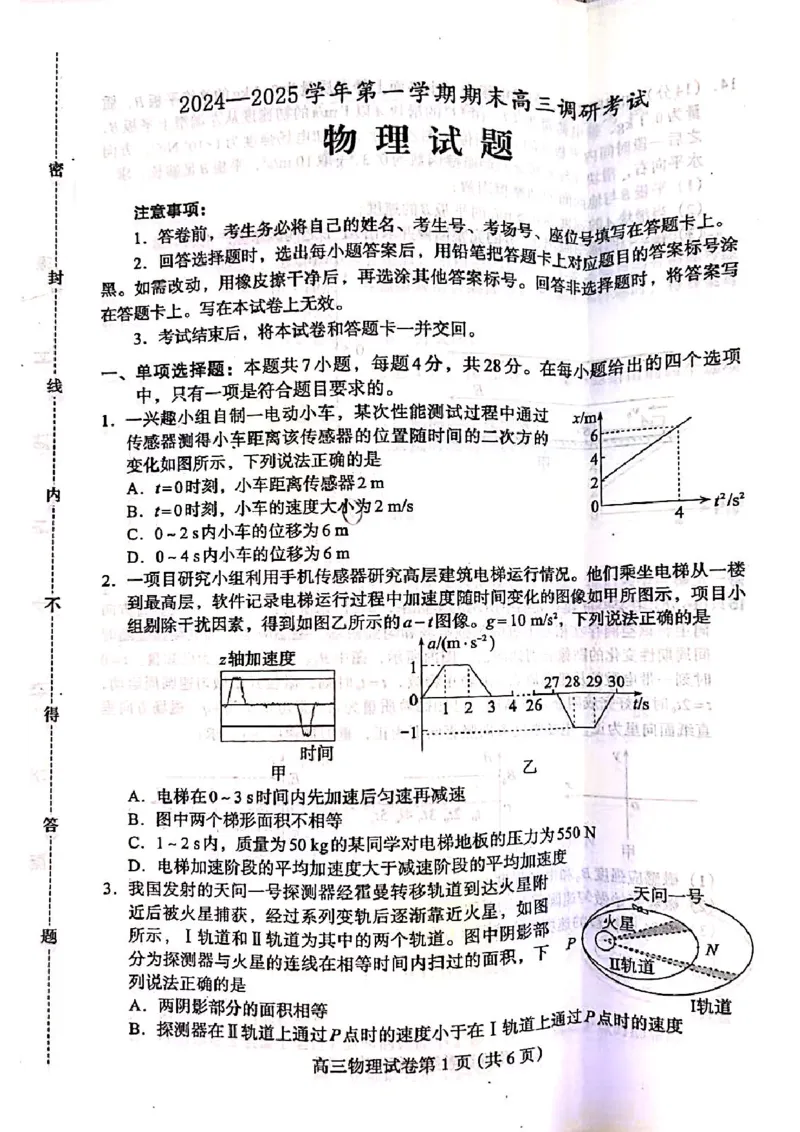 2024—2025学年第一学期期末高三调研考试
物理试题
密
封
线
内
不
得
答
题
注意事项：
1．答卷前，考生务必将自己的姓名、考生号、考场号、座位号填写在答题卡上。
2．回答选择题时，选出每小题答案后，用铅笔把答题卡上对应题目的答案标号涂
黑。如需改动，用橡皮擦干净后，再选涂其他答案标号。回答非选择题时，将答案写
在答题卡上。写在本试卷上无效。
3．考试结束后，将本试卷和答题卡一并交回。
一、单项选择题：本题共7小题，每题4分，共28分。在每小题给出的四个选项
中，只有一项是符合题目要求的。
1．一兴趣小组自制一电动小车，某次性能测试过程中通过
传感器测得小车距离该传感器的位置随时间的二次方的
变化如图所示，下列说法正确的是
A．t=0时刻，小车距离传感器2 m
B．t=0时刻，小车的速度大小为2 m/s
C．0~2 s内小车的位移为6 m
D．0~4 s内小车的位移为6 m
x/m
6
4
2
0
4
t²/s²
2．一项目研究小组利用手机传感器研究高层建筑电梯运行情况。他们乘坐电梯从一楼
到最高层，软件记录电梯运行过程中加速度随时间变化的图像如甲所图示，项目小
组剔除干扰因素，得到如图乙所示的a-t图像。g=10 m/s²，下列说法正确的是
z轴加速度
时间
甲
a/(m·s⁻²)
1
0
-1
1 2 3 4 26
27 28 29 30
t/s
乙
A．电梯在0~3 s时间内先加速后匀速再减速
B．图中两个梯形面积不相等
C．1~2 s内，质量为50 kg的某同学对电梯地板的压力为550 N
D．电梯加速阶段的平均加速度大于减速阶段的平均加速度
3．我国发射的天问一号探测器经霍曼转移轨道到达火星附
近后被火星捕获，经过系列变轨后逐渐靠近火星，如图
所示，Ⅰ轨道和Ⅱ轨道为其中的两个轨道。图中阴影部
分为探测器与火星的连线在相等时间内扫过的面积，下
列说法正确的是
A．两阴影部分的面积相等
B．探测器在Ⅱ轨道上通过P点时的速度小于在Ⅰ轨道上通过P点时的速度
天问一号
火星
P
N
Ⅱ轨道
Ⅰ轨道
高三物理试卷第1页（共6页）